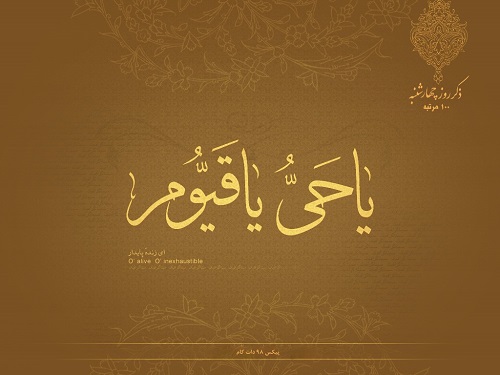 ذکر روز چهارشنبه
۱۰۰ مرتبه
یا حَیُّ یا قَیُّوم
ای زنده پایدار
O' alive O' inexhaustible
پیکس ۹۸ دات کام